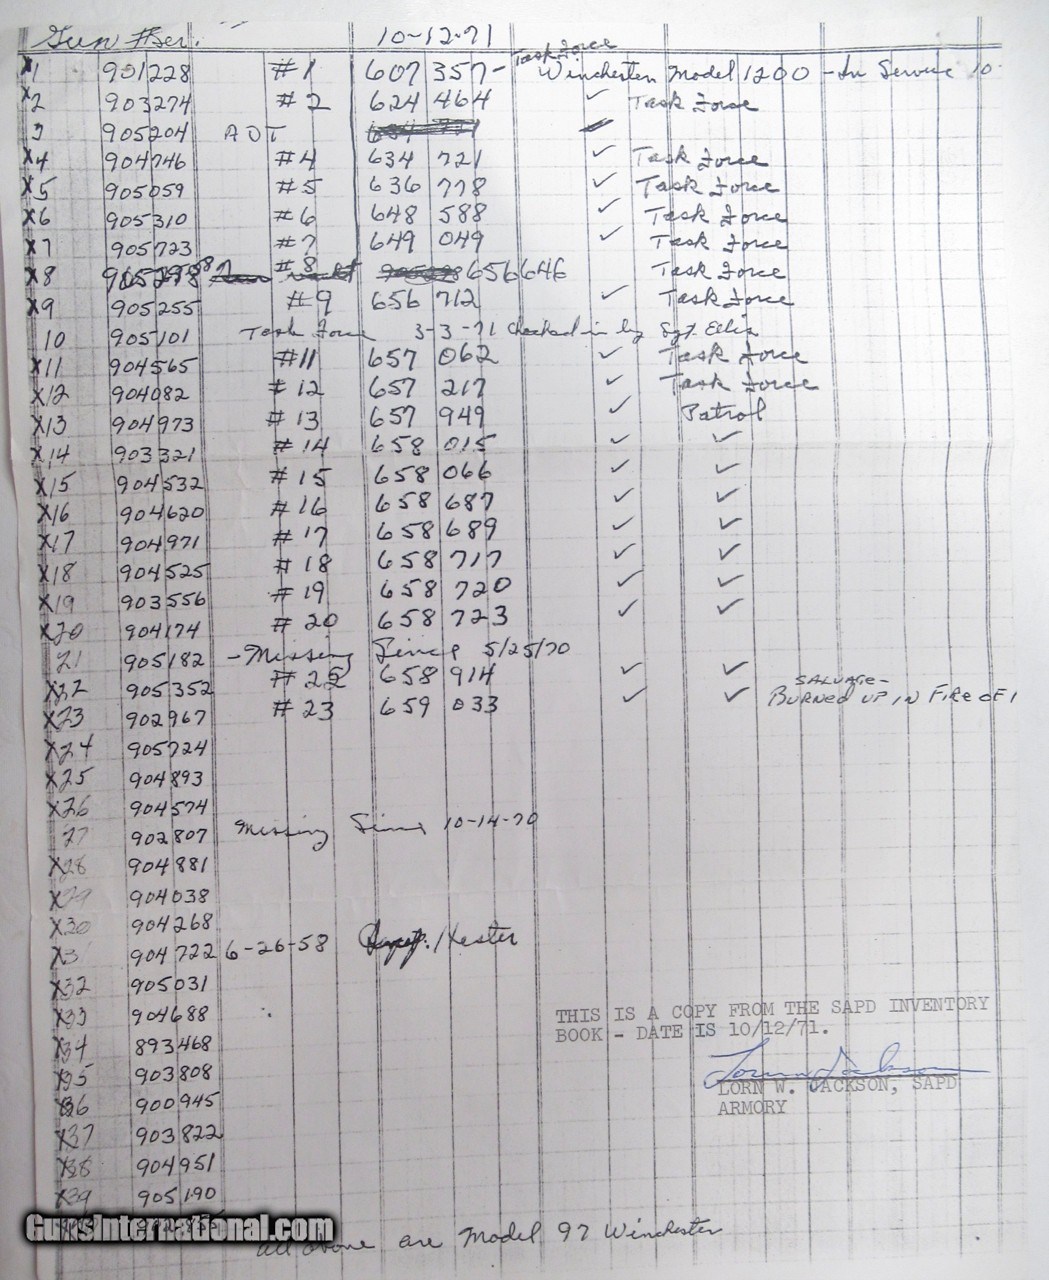 Gun #Ser. 10-12-71
Task Force
X1 901228 #1 607 357- Winchester Model 1200 - In Service 10
X2 903274 #2 624 464 ✓ Task Force
3 905204 AOT
X4 904746 #4 634 721 ✓ Task Force
X5 905059 #5 636 778 ✓ Task Force
X6 905310 #6 648 588 ✓ Task Force
X7 905723 #7 649 049 ✓ Task Force
X8 #8 656646 Task Force
X9 905255 #9 656 712 ✓ Task Force
10 905101 Task Force 3-3-71 Checked in by Sgt Ellis
X11 904565 #11 657 062 ✓ Task Force
X12 904082 #12 657 217 ✓ Task Force
X13 904973 #13 657 949 ✓ Patrol
X14 903321 #14 658 015 ✓ ✓
X15 904532 #15 658 066 ✓ ✓
X16 904620 #16 658 687 ✓ ✓
X17 904971 #17 658 689 ✓ ✓
X18 904525 #18 658 717 ✓ ✓
X19 903556 #19 658 720 ✓ ✓
X20 904174 #20 658 723 ✓ ✓
21 905182 - Missing Since 5/25/70
X22 905352 #22 658 914 ✓ ✓ SALVAGE-
X23 902967 #23 659 033 ✓ ✓ BURNED UP IN FIRE OF 1
X24 905724
X25 904893
X26 904574
27 902807 Missing Since 10-14-70
X28 904881
X29 904038
X30 904268
X3 904722 6-26-58 Hester
X32 905031
X33 904688
X34 893468
X35 903808
X36 900945
X37 903822
X38 904951
X39 905190
All above are Model 97 Winchester
THIS IS A COPY FROM THE SAPD INVENTORY
BOOK - DATE IS 10/12/71.
Lorn Jackson
LORN W. JACKSON, SAPD
ARMORY
GunsInternational.com